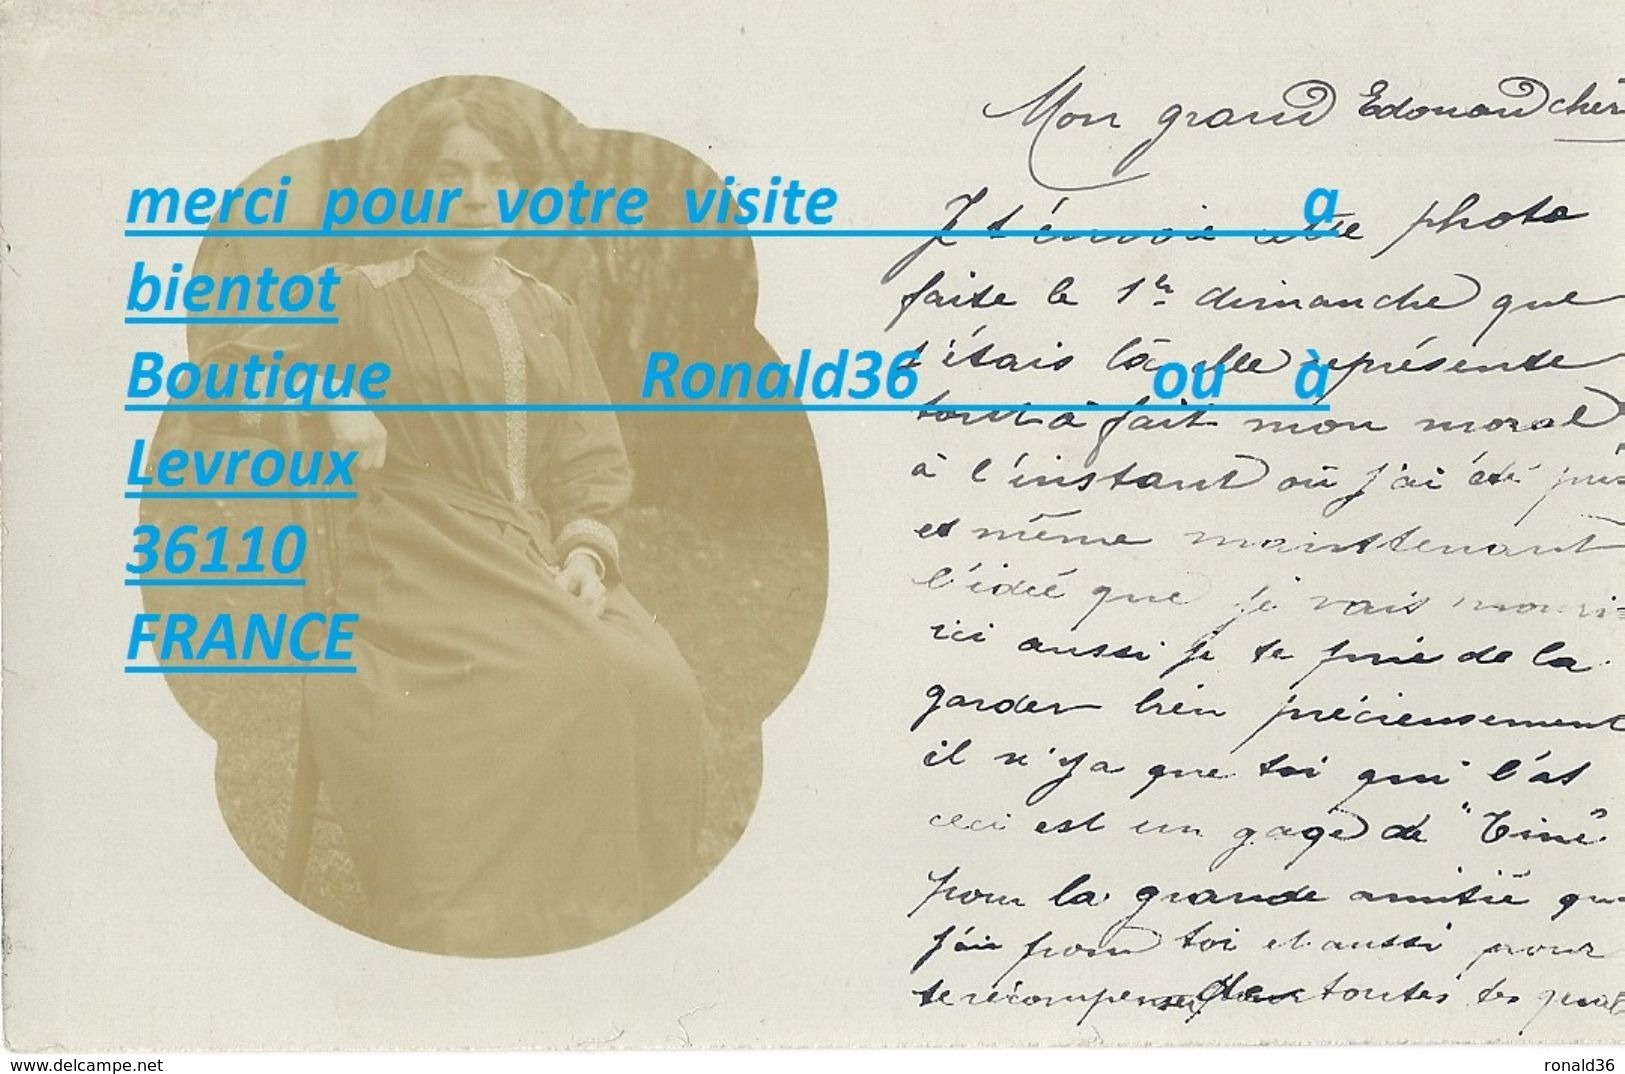 merci pour votre visite a
bientot
Boutique Ronald36 ou à
Levroux
36110
FRANCE
Mon grand Edouard chéri
Je t'envoie cette photo
faite le 1er dimanche que
t'étais là elle représente
tout à fait mon moral
à l'instant où j'ai été
et même maintenant
l'idée que je vais mourir
ici aussi je te prie de la
garder bien précieusement
il n'y a que toi qui l'as
ceci est un gage de "Tine"
pour la grande amitié que
j'ai pour toi et aussi pour
te récompenser de toutes tes
delcampe.net
ronald36